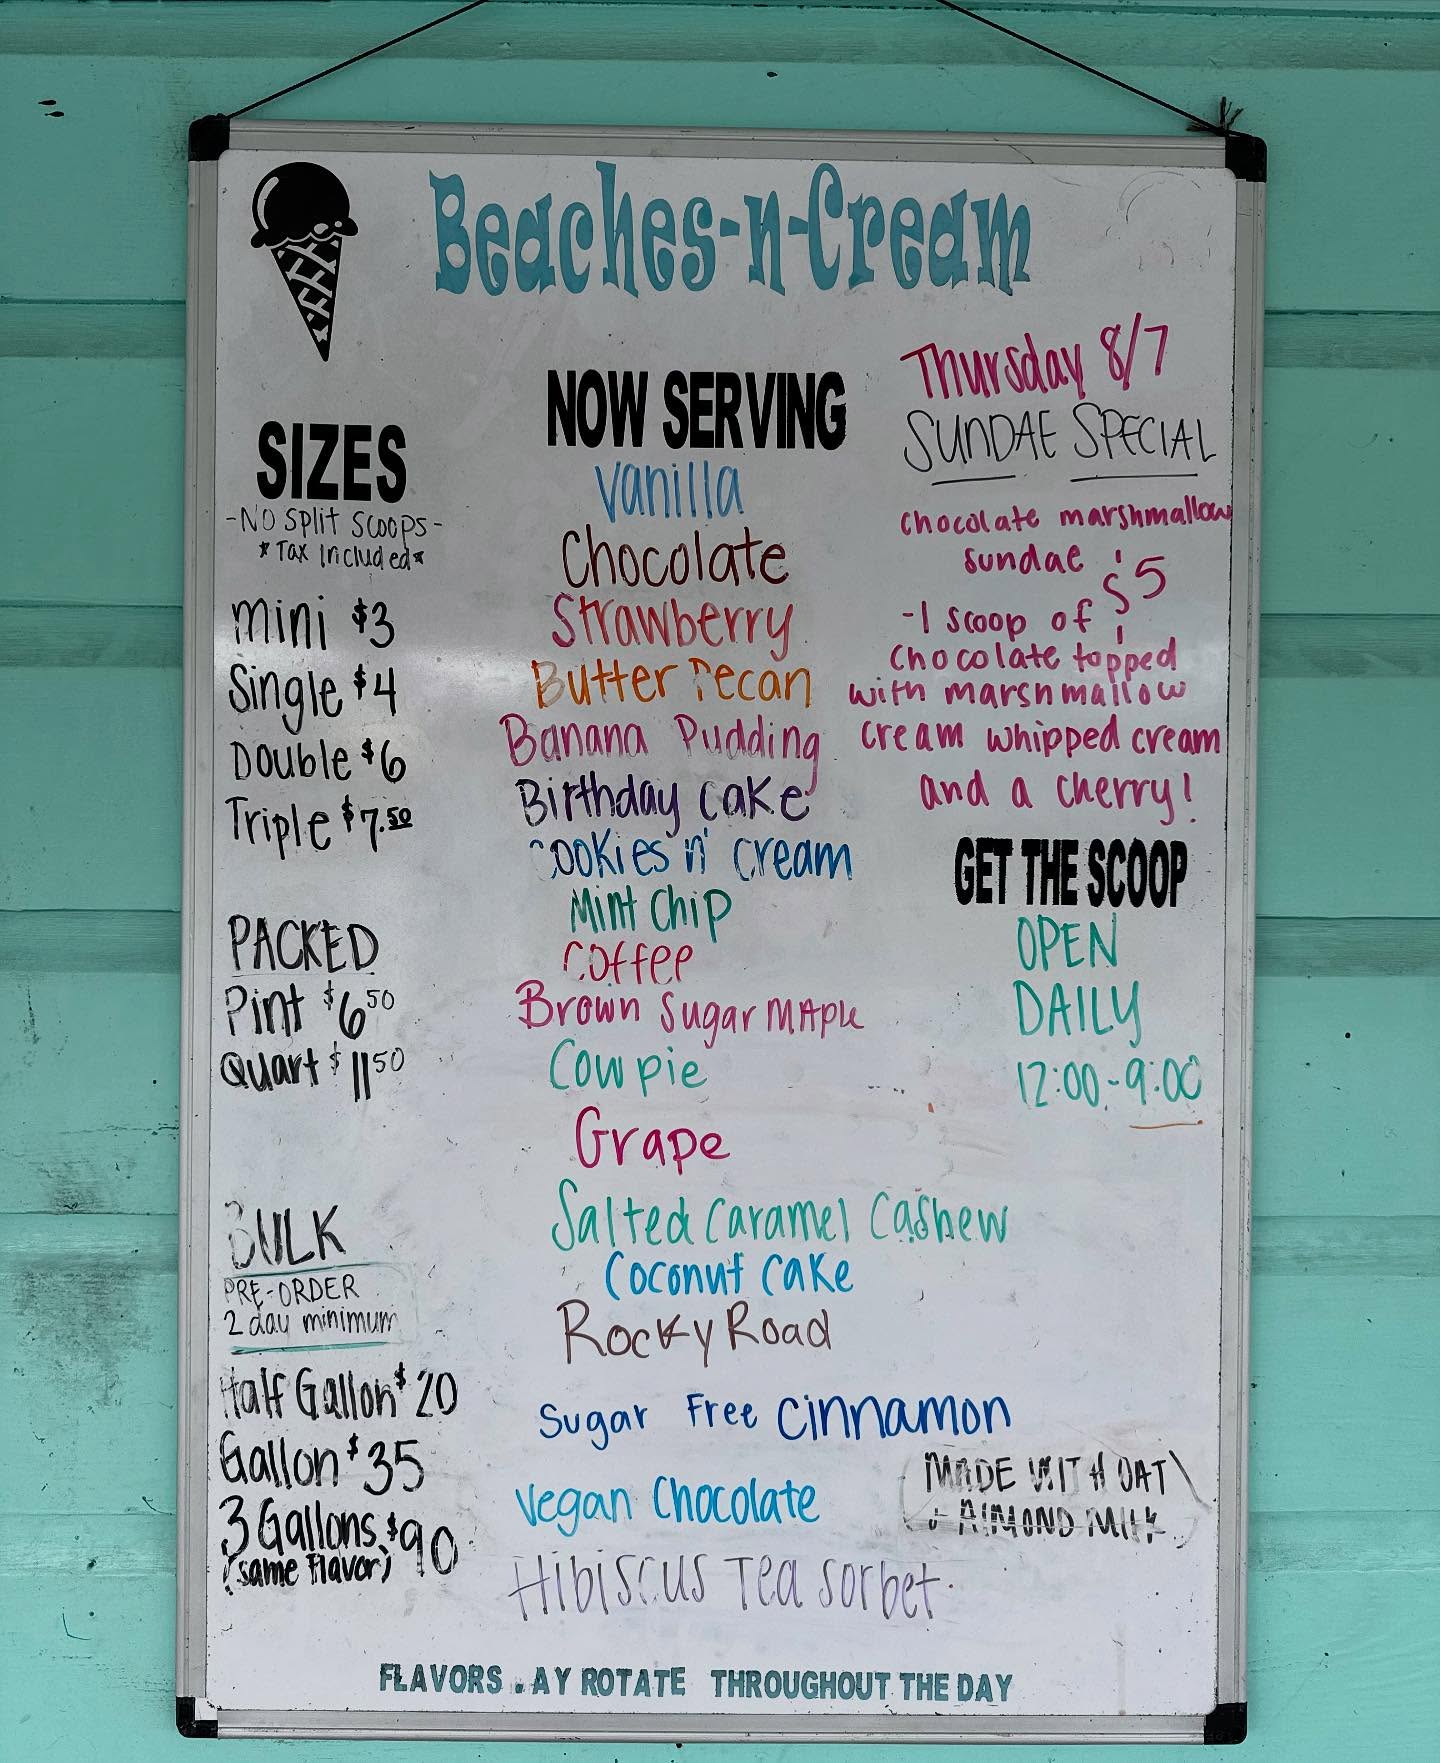 Beaches-n-Cream
SIZES
-NO Split Scoops-
*Tax Included*
Mini $3
Single $4
Double $6
Triple $7.50
PACKED
Pint $6.50
Quart $11.50
BULK
PRE-ORDER
2 day minimum
Half Gallon $20
Gallon $35
3 Gallons $90
(same flavor)
NOW SERVING
Vanilla
Chocolate
Strawberry
Butter Pecan
Banana Pudding
Birthday Cake
Cookies n' Cream
Mint Chip
Coffee
Brown Sugar Maple
Cow pie
Grape
Salted Caramel Cashew
Coconut Cake
Rocky Road
Sugar Free Cinnamon
Vegan Chocolate
(MADE WITH OAT
+ ALMOND MILK)
Hibiscus Tea Sorbet
Thursday 8/7
SUNDAE SPECIAL
chocolate marshmallow
sundae $5
-1 scoop of
chocolate topped
with marshmallow
cream whipped cream
and a cherry!
GET THE SCOOP
OPEN
DAILY
12:00-9:00
FLAVORS MAY ROTATE THROUGHOUT THE DAY